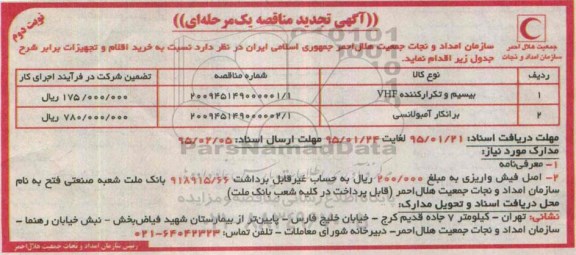 ((آگهی تجدید مناقصه یک‌مرحله‌ای))
نوبت دوم
جمعیت هلال احمر
سازمان امداد و نجات
سازمان امداد و نجات جمعیت هلال‌احمر جمهوری اسلامی ایران در نظر دارد نسبت به خرید اقلام و تجهیزات برابر شرح
جدول زیر اقدام نماید.
ردیف نوع کالا شماره مناقصه تضمین شرکت در فرآیند اجرای کار
۱ بیسیم و تکرارکننده VHF ۲۰۰۹۴۵۱۴۹۰۰۰۰۰۱/۱ ۱۷۵/۰۰۰/۰۰۰ ریال
۲ برانکار آمبولانسی ۲۰۰۹۴۵۱۴۹۰۰۰۰۰۲/۱ ۷۸۰/۰۰۰/۰۰۰ ریال
مهلت دریافت اسناد: ۹۵/۰۱/۲۱ لغایت ۹۵/۰۱/۲۴ مهلت ارسال اسناد: ۹۵/۰۲/۰۵
مدارک مورد نیاز:
۱- معرفی‌نامه
۲- اصل فیش واریزی به مبلغ ۲۰۰/۰۰۰ ریال به حساب غیرقابل برداشت ۹۱۸۹۱۵/۶۶ بانک ملت شعبه صنعتی فتح به نام
سازمان امداد و نجات جمعیت هلال‌احمر (قابل پرداخت در کلیه شعب بانک ملت)
محل دریافت اسناد و تحویل مدارک:
نشانی: تهران - کیلومتر ۷ جاده قدیم کرج - خیابان خلیج فارس - پایین‌تر از بیمارستان شهید فیاض‌بخش - نبش خیابان رهنما -
سازمان امداد و نجات جمعیت هلال‌احمر - دبیرخانه شورای معاملات - تلفن تماس: ۶۴۰۴۲۳۲۳-۰۲۱
رئیس سازمان امداد و نجات جمعیت هلال‌احمر
ParsNamadData